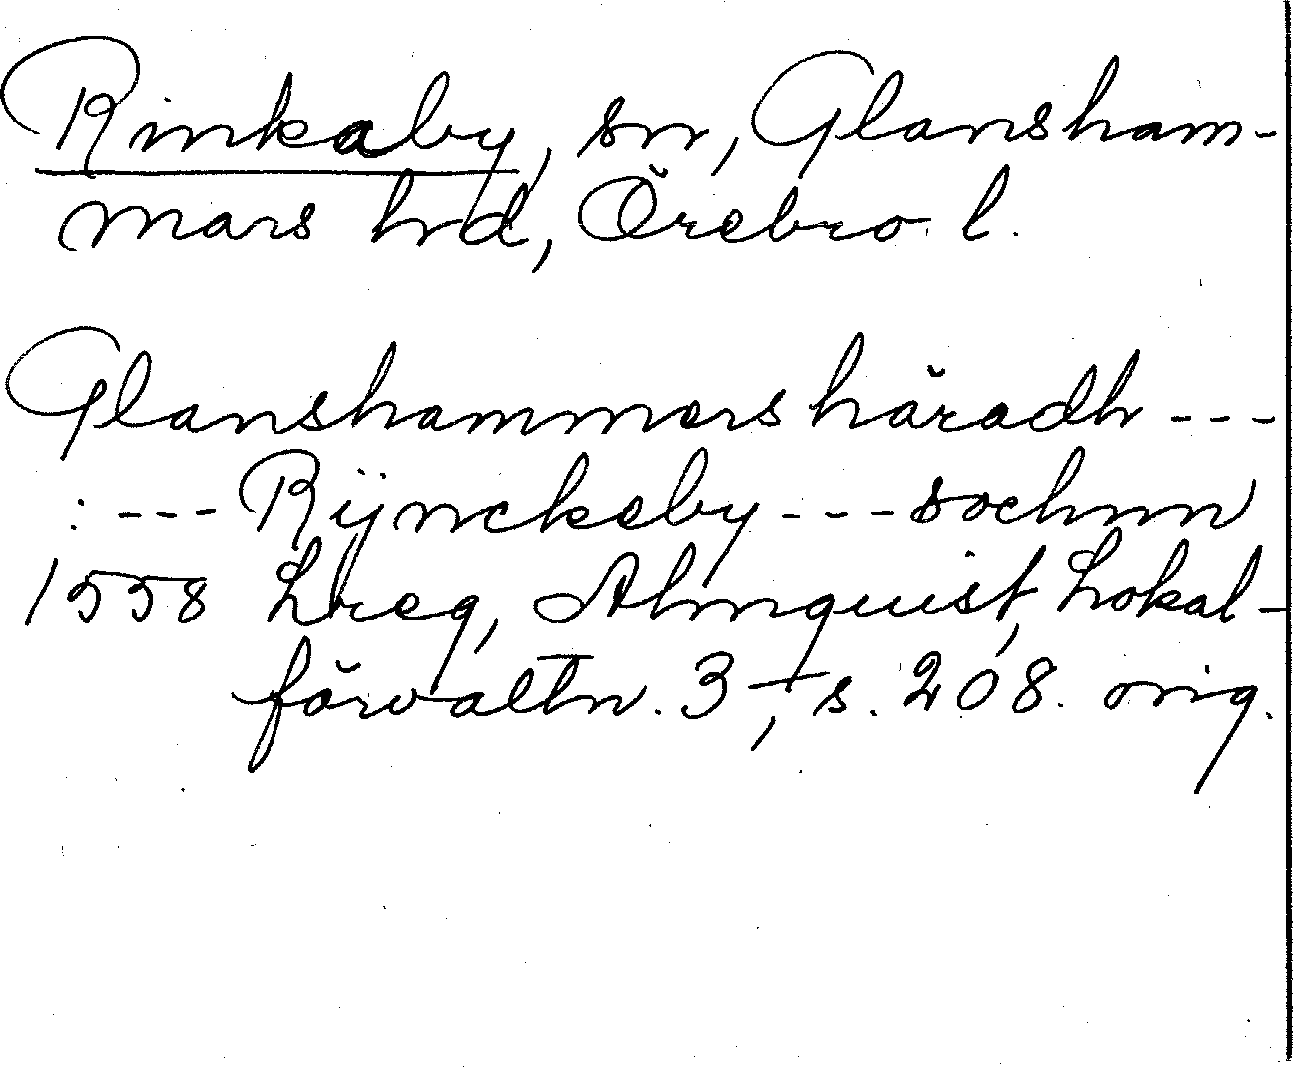 Rinkaby, sn, Glansham-
mars hrd, Örebro l.
Glanshammers häradh ---
: --- Rÿnckeby --- sochnn
1558 Lreg, Almquist, Lokal-
förvaltn. 3, s. 208. orig.